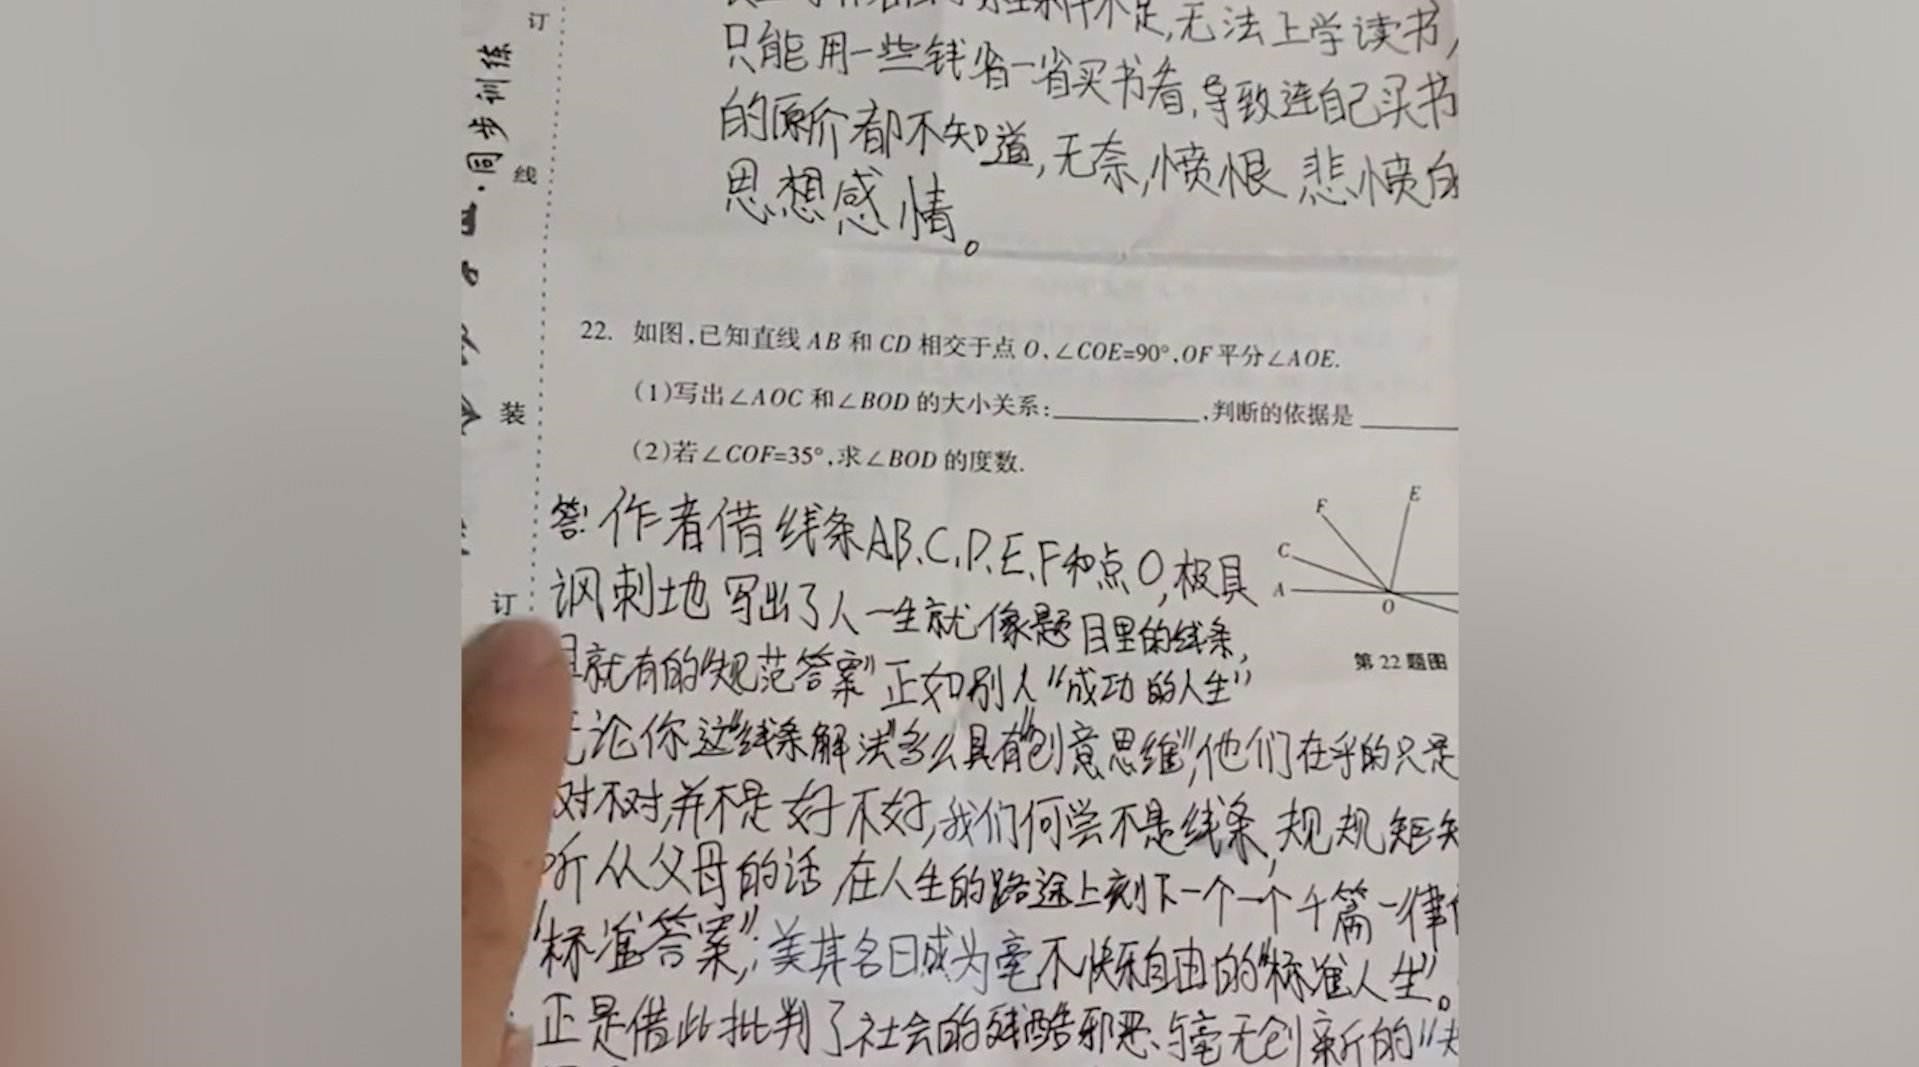 订
同步训练
线
不足,无法上学读书,
只能用一些钱省一省买书看,导致连自己买书
的原价都不知道,无奈,愤恨,悲愤的
思想感情。
22. 如图,已知直线 AB 和 CD 相交于点 O,∠COE=90°,OF 平分∠AOE.
(1)写出∠AOC 和∠BOD 的大小关系:____________,判断的依据是________
(2)若∠COF=35°,求∠BOD 的度数.
装
订
F
E
C
A
O
第 22 题图
答:作者借线条AB、C、D、E、F和点O,极具
讽刺地写出了人一生就像题目里的线条,
就有的“规范答案”正如别人“成功的人生”
无论你这“线条解法”多么具有“创意思维”,他们在乎的只是
对不对,并不是好不好,我们何尝不是线条,规规矩矩
听从父母的话,在人生的路途上刻下一个一个千篇一律
“标准答案”;美其名曰成为毫不快乐自由的“标准人生”。
正是借此批判了社会的残酷邪恶、与毫无创新的“